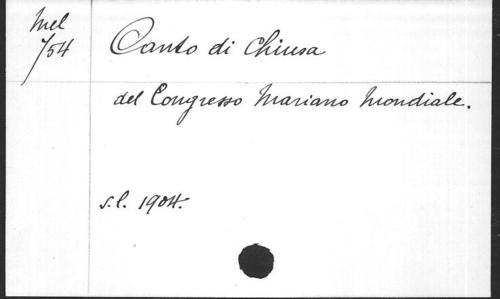 Mel
754
Canto di Chiusa
del Congresso Mariano Mondiale.
s.l. 1904.